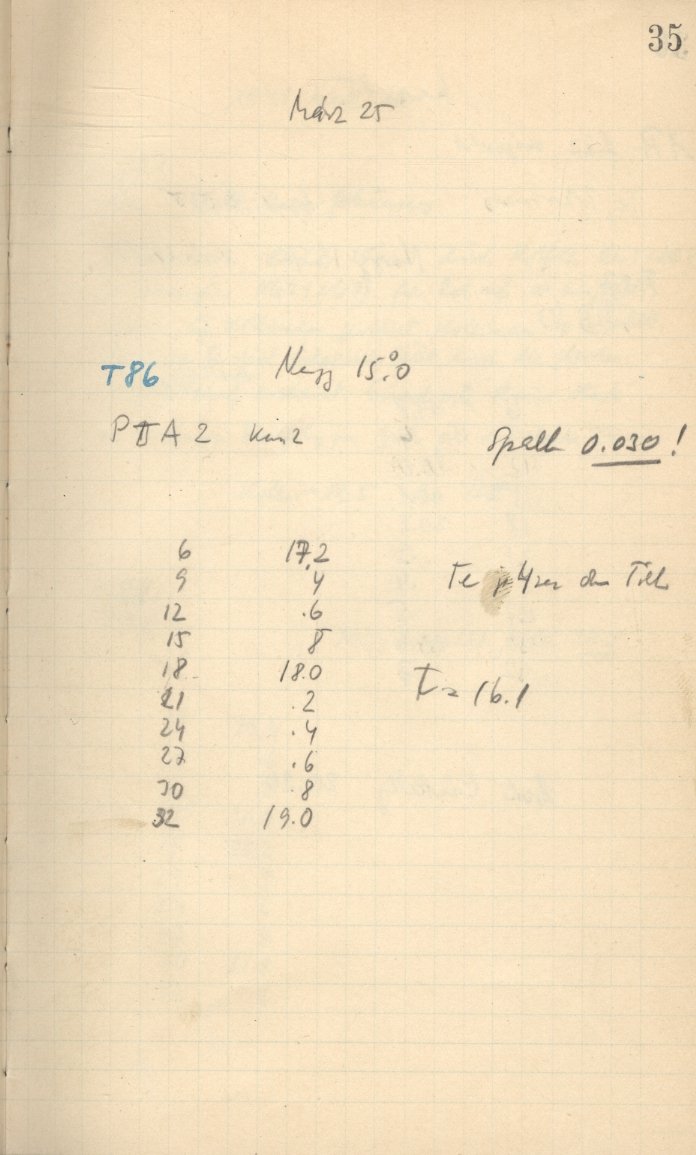 35
März 25
T86 Negg 15.°0
P II A 2 Kin 2 Spalt 0.030!
6 17.2
9 4 Fe
12 .6
15 8
18 18.0
21 .2 T = 16.1
24 .4
27 .6
30 .8
32 19.0